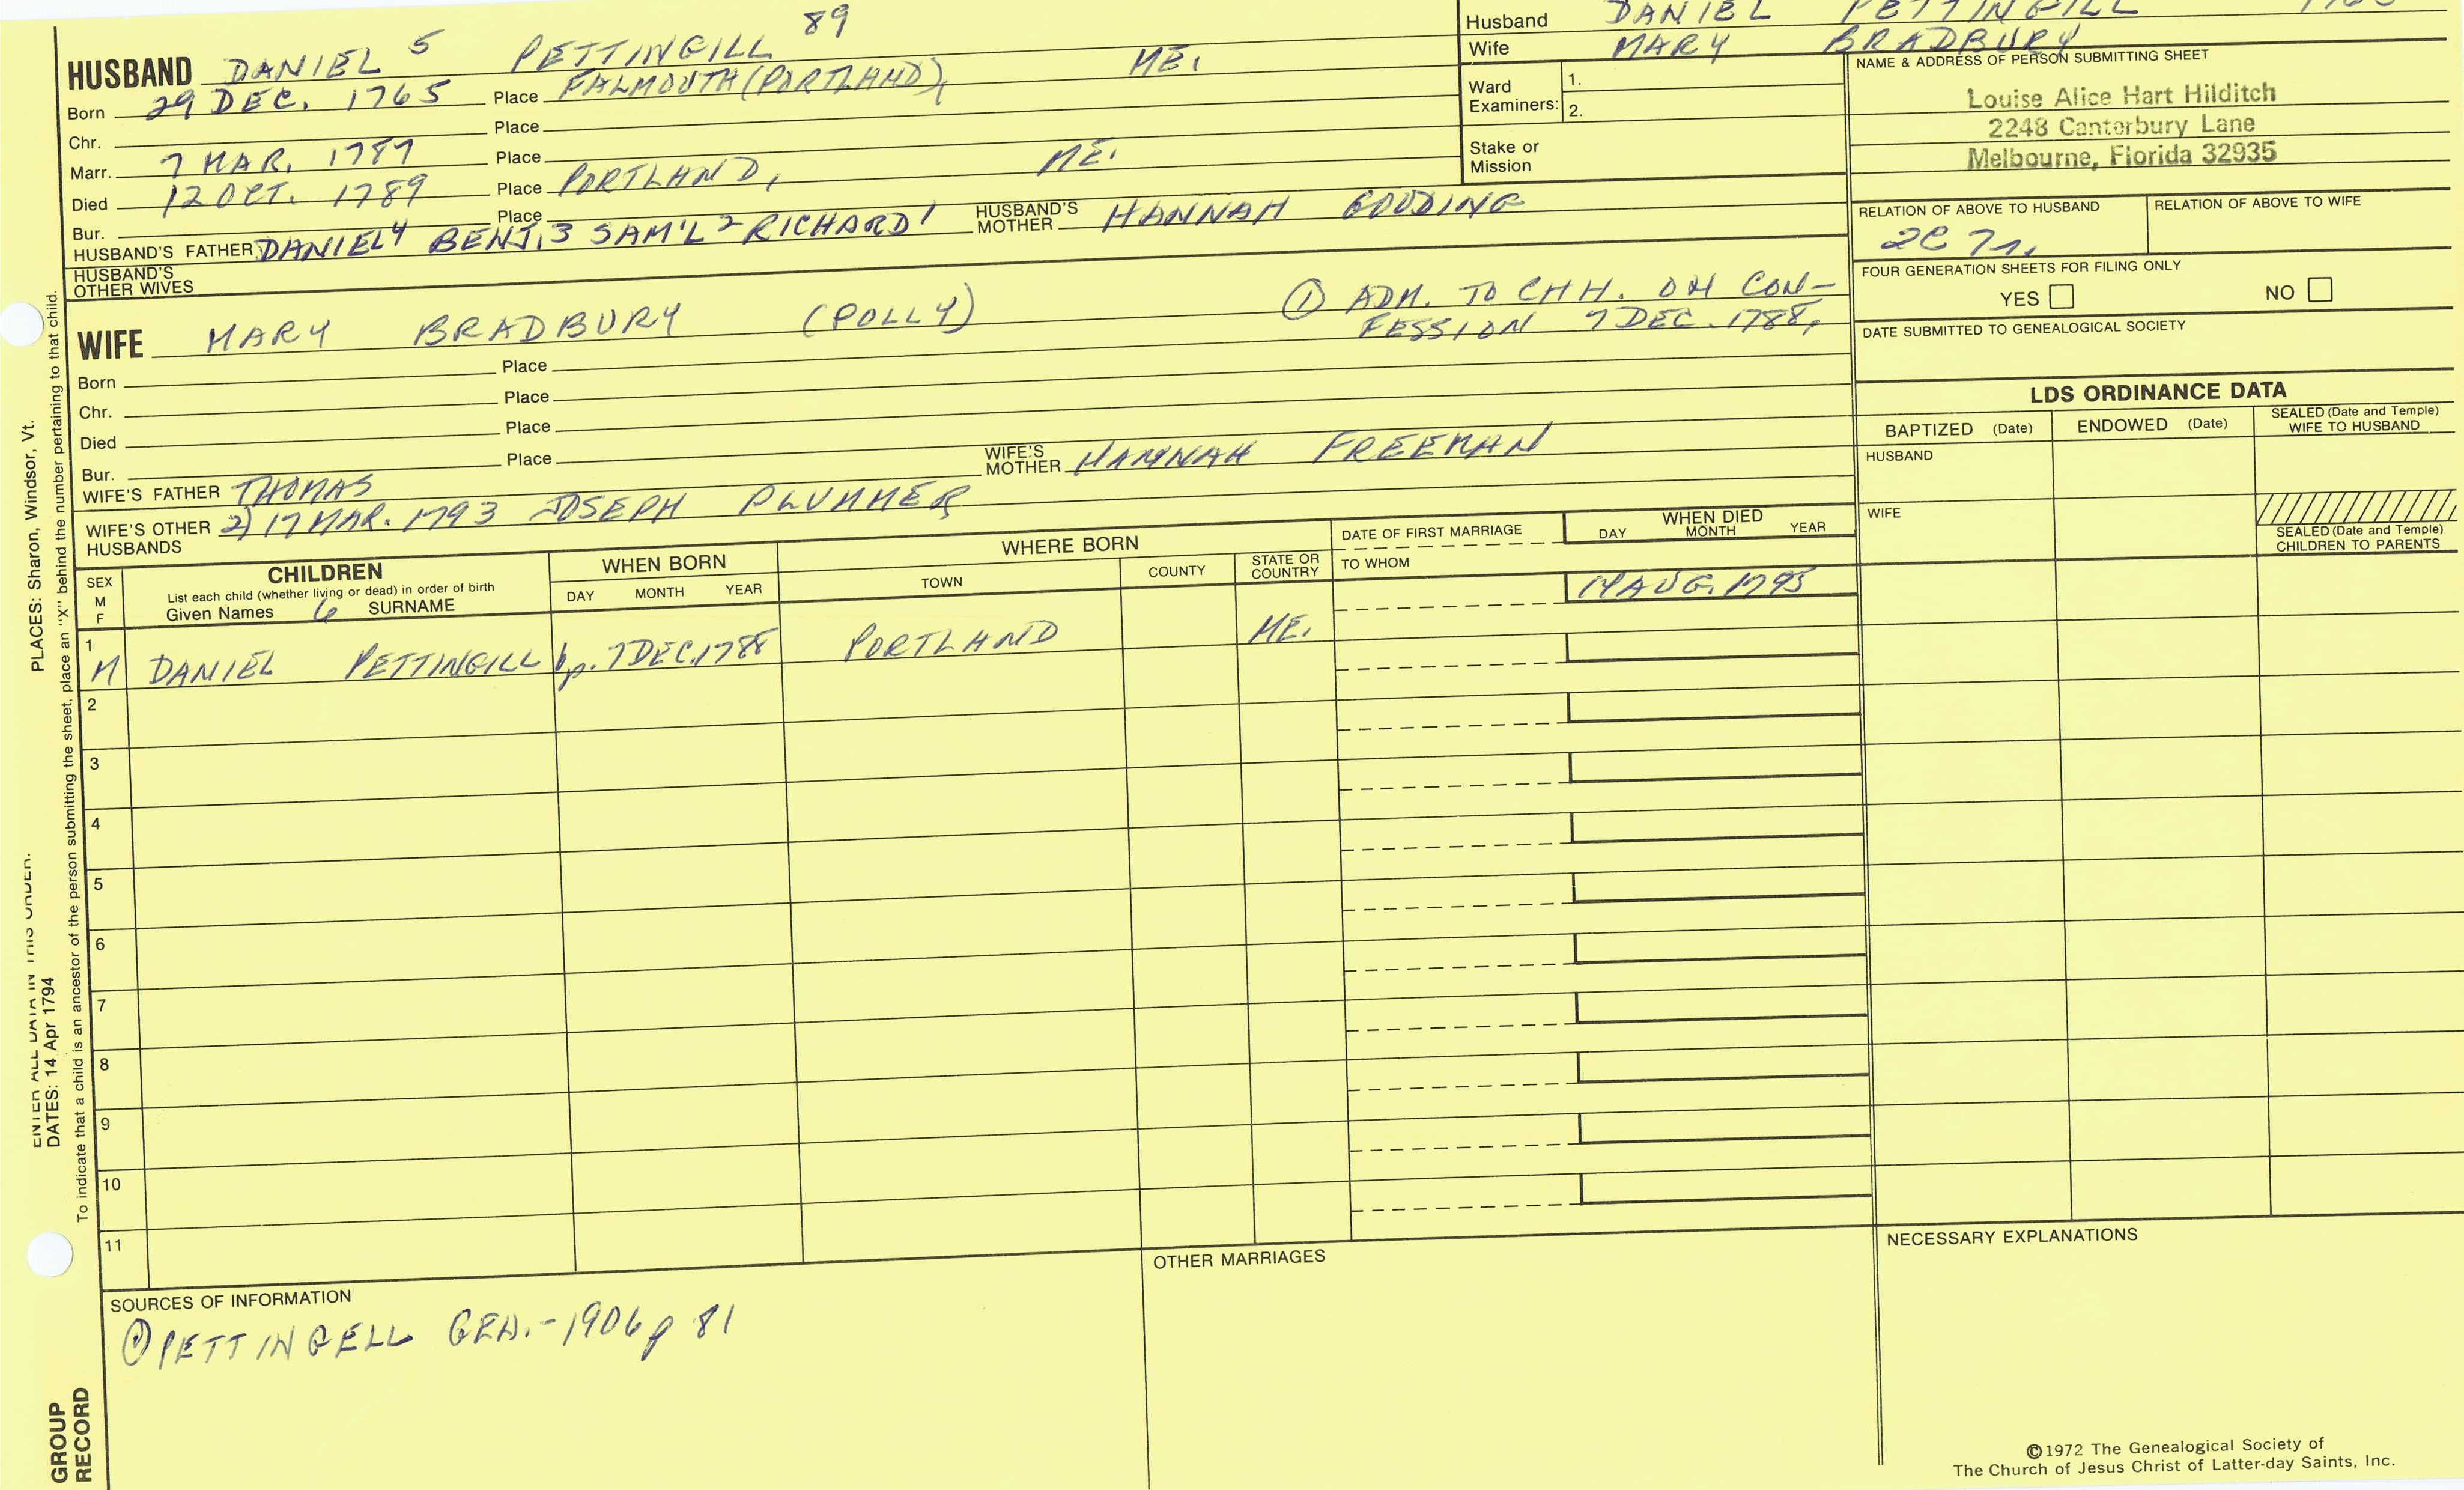 HUSBAND DANIEL 5 PETTINGILL 89
Born 29 DEC. 1765 Place FALMOUTH (PORTLAND), ME.
Chr. Place
Marr. 7 MAR. 1787 Place
Died 12 OCT. 1789 Place PORTLAND, ME.
Bur. Place
HUSBAND'S FATHER DANIEL 4 BENJ. 3 SAM'L 2 RICHARD 1 HUSBAND'S MOTHER HANNAH GOODING
HUSBAND'S OTHER WIVES
WIFE MARY BRADBURY (POLLY) ① ADM. TO CHH. ON CON-
FESSION 7 DEC. 1788,
Born Place
Chr. Place
Died Place
Bur. Place
WIFE'S FATHER THOMAS WIFE'S MOTHER HANNAH FREEMAN
WIFE'S OTHER HUSBANDS 2) 17 MAR. 1793 JOSEPH PLUMMER
Husband DANIEL PETTINGILL
Wife MARY BRADBURY
Ward Examiners: 1.
2.
Stake or Mission
NAME & ADDRESS OF PERSON SUBMITTING SHEET
Louise Alice Hart Hilditch
2248 Canterbury Lane
Melbourne, Florida 32935
RELATION OF ABOVE TO HUSBAND RELATION OF ABOVE TO WIFE
FOUR GENERATION SHEETS FOR FILING ONLY
YES NO
DATE SUBMITTED TO GENEALOGICAL SOCIETY
LDS ORDINANCE DATA
BAPTIZED (Date) ENDOWED (Date) SEALED (Date and Temple) WIFE TO HUSBAND
HUSBAND
WIFE
SEALED (Date and Temple) CHILDREN TO PARENTS
SEX M F
CHILDREN
List each child (whether living or dead) in order of birth
Given Names 6 SURNAME
WHEN BORN
DAY MONTH YEAR
WHERE BORN
TOWN COUNTY STATE OR COUNTRY
DATE OF FIRST MARRIAGE
TO WHOM
WHEN DIED
DAY MONTH YEAR
1 M DANIEL PETTINGILL bp. 7 DEC. 1788 PORTLAND ME. AUG. 1795
2
3
4
5
6
7
8
9
10
11
SOURCES OF INFORMATION
① PETTINGELL GEN.-1906 p 81
OTHER MARRIAGES
NECESSARY EXPLANATIONS
©1972 The Genealogical Society of
The Church of Jesus Christ of Latter-day Saints, Inc.
PLACES: Sharon, Windsor, Vt.
ENTER ALL DATA IN THIS ORDER:
DATES: 14 Apr 1794
To indicate that a child is an ancestor of the person submitting the sheet, place an "X" behind the number pertaining to that child.
GROUP
RECORD